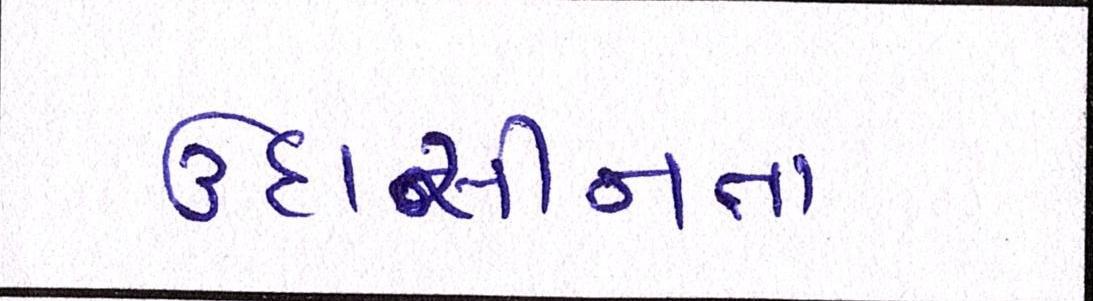 ઉદાસીનતા